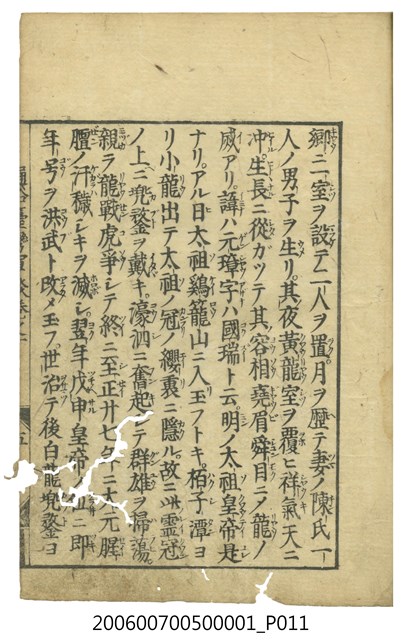 郷ニ一室ヲ設テ二人ヲ置月ヲ歴テ妻ノ陳氏一
人ノ男子ヲ生リ。其夜黄龍室ヲ覆ヒ祥氣天ニ
冲。生長ニ從ガツテ其容相堯眉舜目ニメ龍ノ
威アリ。諱ハ元璋字ハ國瑞ト云明ノ太祖皇帝是
ナリ。アル日太祖鷄籠山ニ入玉フトキ。栢子潭ヨ
リ小龍出テ太祖ノ冠ノ纓裏ニ隱ル。故ニ此霊冠
ノ上ニ兜鍪ヲ戴キ。濠泗ニ奮起シテ群雄ヲ掃蕩。
親ヲ龍戰虎爭シテ終ニ至正廿七年ニ大元腥
膻ノ汗穢シキヲ滅シ。翌年戊申皇帝ノ位ニ即
年号ヲ洪武ト改メ玉フ。世治テ後白龍兜鍪ヨ
200600700500001_P011